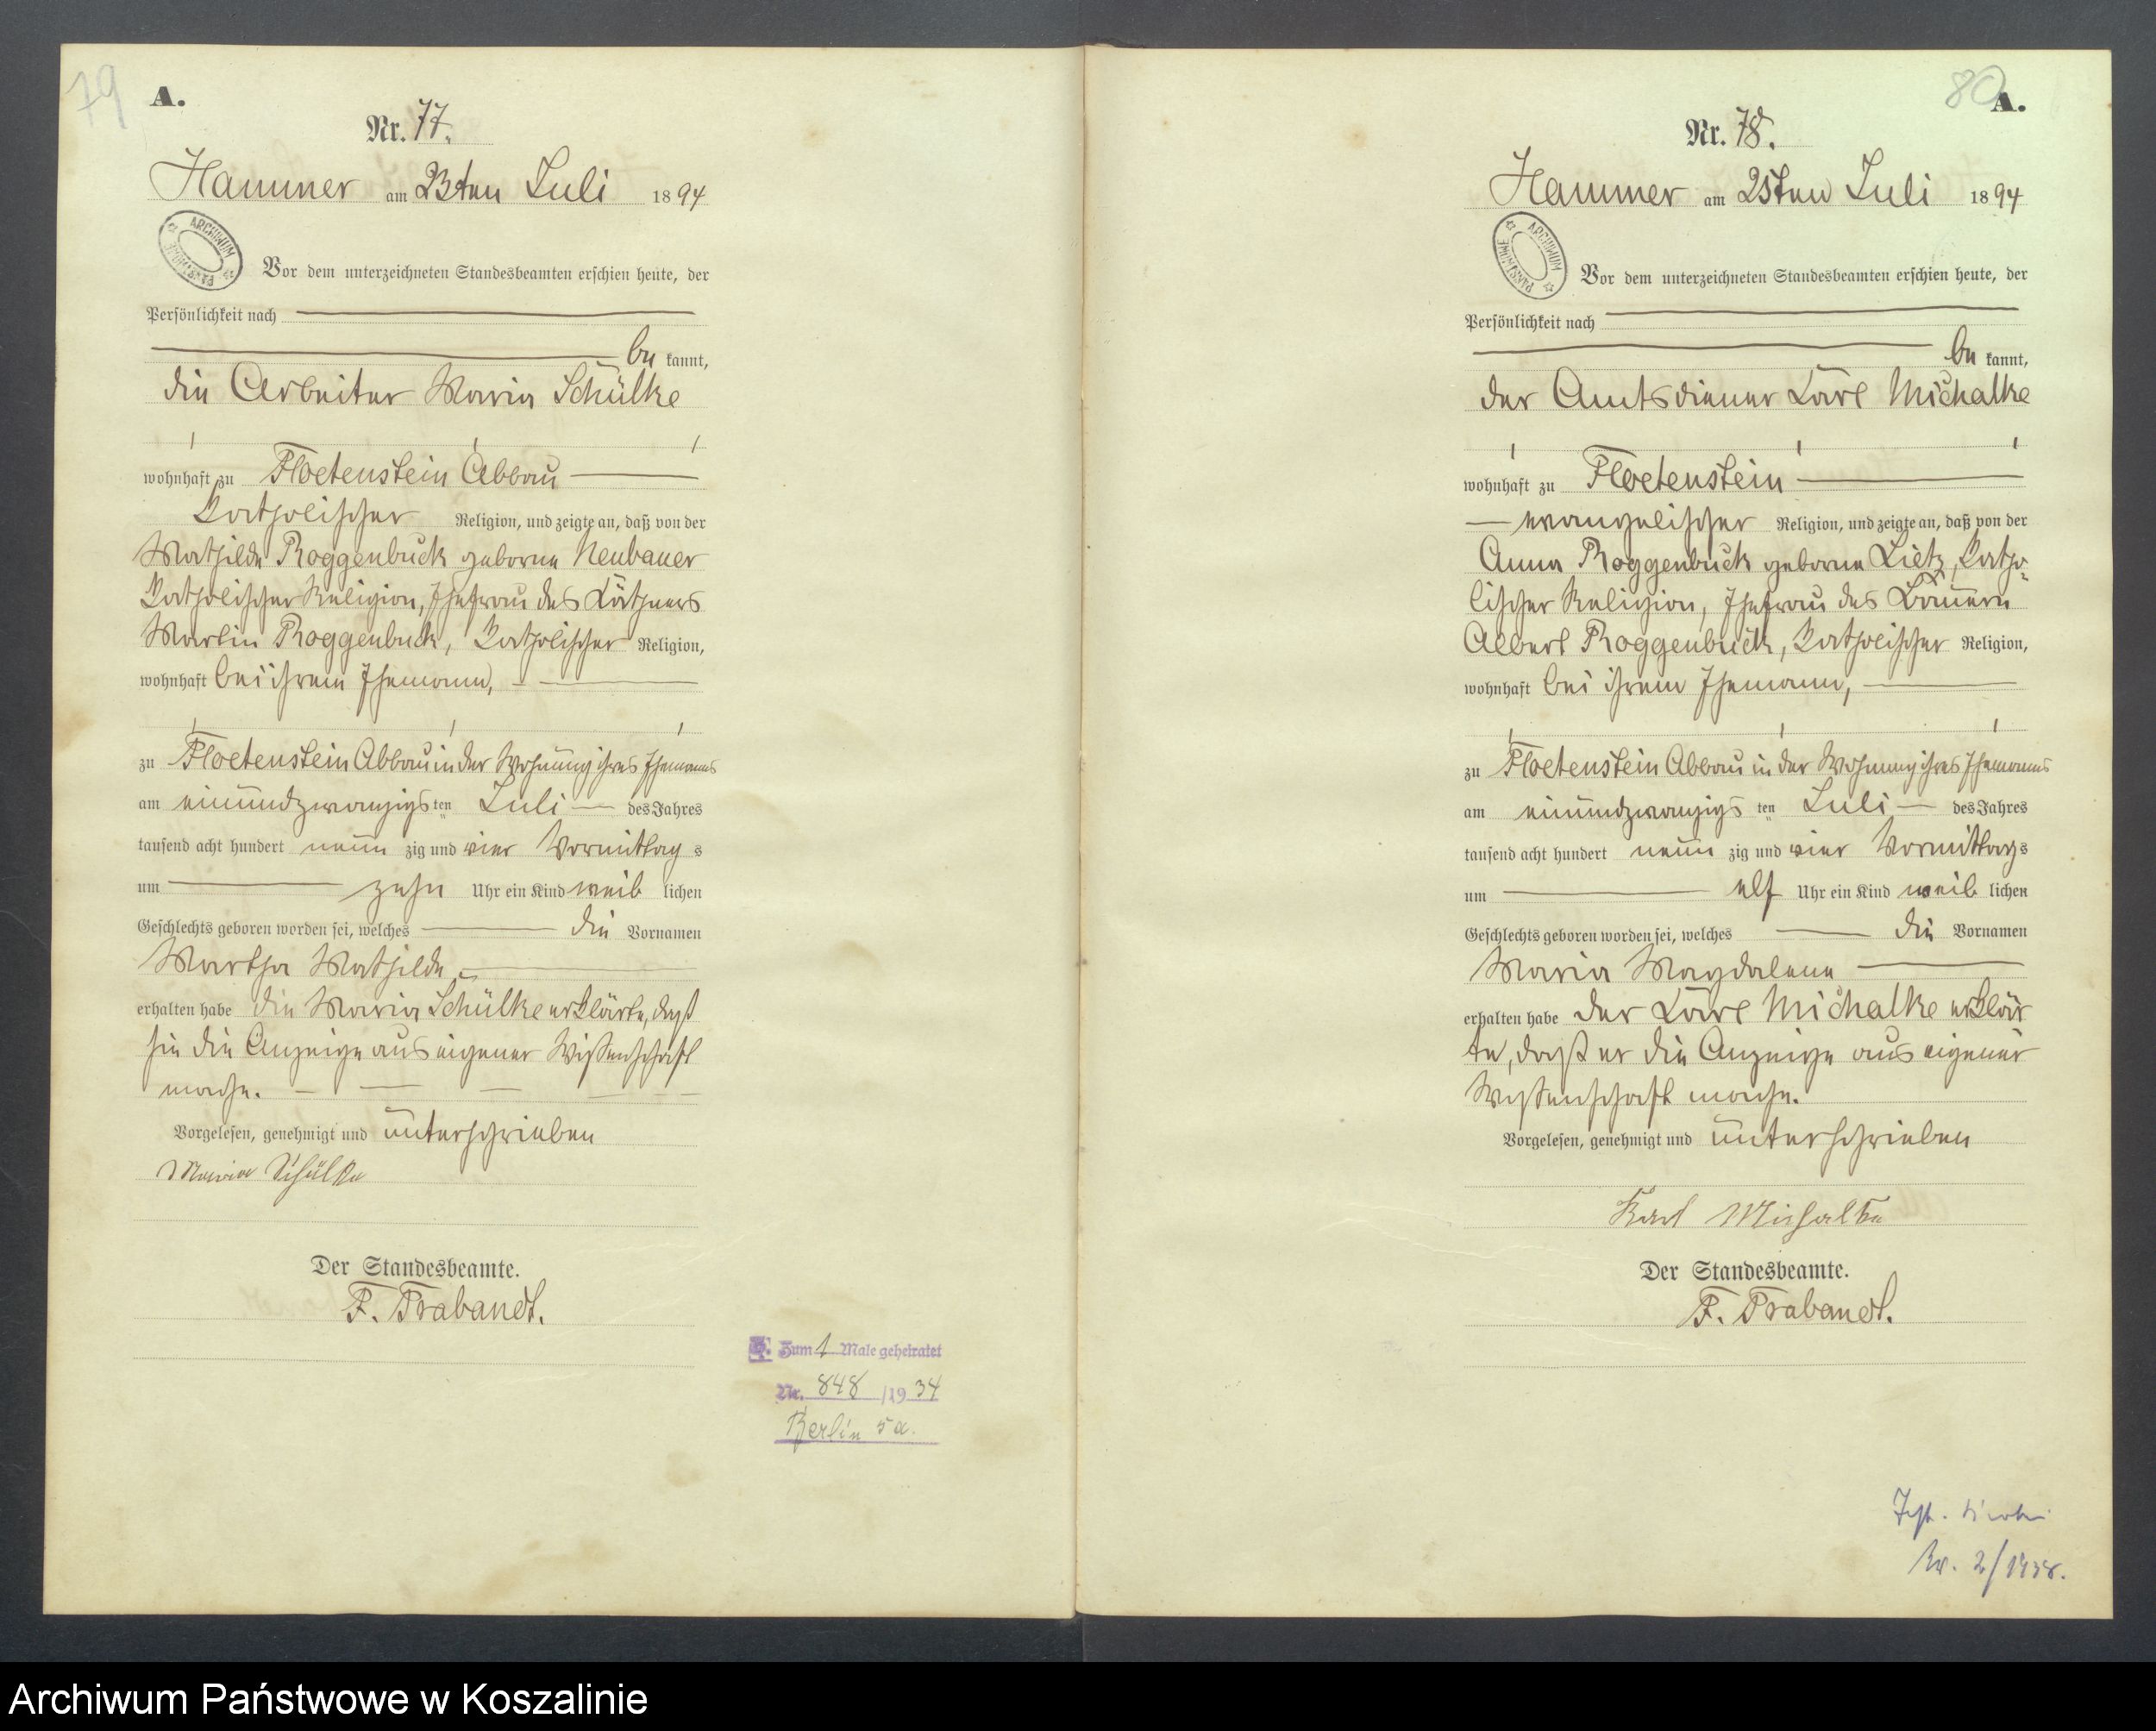 79
A.
Nr. 77.
Hammer am 23ten Juli 1894
ARCHIWUM PAŃSTWOWE
Vor dem unterzeichneten Standesbeamten erschien heute, der
Persönlichkeit nach
be kannt,
die Arbeiter Maria Schülke
wohnhaft zu Floetenstein Abbau
katholischer Religion, und zeigte an, daß von der
Mathilde Roggenbuck geborne Neubauer
katholischer Religion, Ehefrau des Käthners
Martin Roggenbuck, katholischer Religion,
wohnhaft bei ihrem Ehemann,
zu Floetenstein Abbau in der Wohnung ihres Ehemanns
am einundzwanzigs ten Juli des Jahres
tausend acht hundert neun zig und vier Vormittag s
um zehn Uhr ein Kind weib lichen
Geschlechts geboren worden sei, welches die Vornamen
Martha Mathilde
erhalten habe die Maria Schülke erklärte, daß
sie die Anzeige aus eigener Wissenschaft
mache.
Vorgelesen, genehmigt und unterschrieben
Maria Schülke
Der Standesbeamte.
F. Trabandt.
Zum 1 Male geheiratet
Nr. 848 /1934
Berlin 5a.
80
A.
Nr. 78.
Hammer am 25ten Juli 1894
ARCHIWUM PAŃSTWOWE
Vor dem unterzeichneten Standesbeamten erschien heute, der
Persönlichkeit nach
be kannt,
der Amtsdiener Karl Michalke
wohnhaft zu Floetenstein
evangelischer Religion, und zeigte an, daß von der
Anna Roggenbuck geborne Lietz, katho-
lischer Religion, Ehefrau des Bauern
Albert Roggenbuck, katholischer Religion,
wohnhaft bei ihrem Ehemann,
zu Floetenstein Abbau in der Wohnung ihres Ehemanns
am einundzwanzigs ten Juli des Jahres
tausend acht hundert neun zig und vier Vormittags
um elf Uhr ein Kind weib lichen
Geschlechts geboren worden sei, welches die Vornamen
Maria Magdalene
erhalten habe der Karl Michalke erklär
te, daß er die Anzeige aus eigener
Wissenschaft mache.
Vorgelesen, genehmigt und unterschrieben
Karl Michalke
Der Standesbeamte.
F. Trabandt.
Nr. 2/1938.
Archiwum Państwowe w Koszalinie